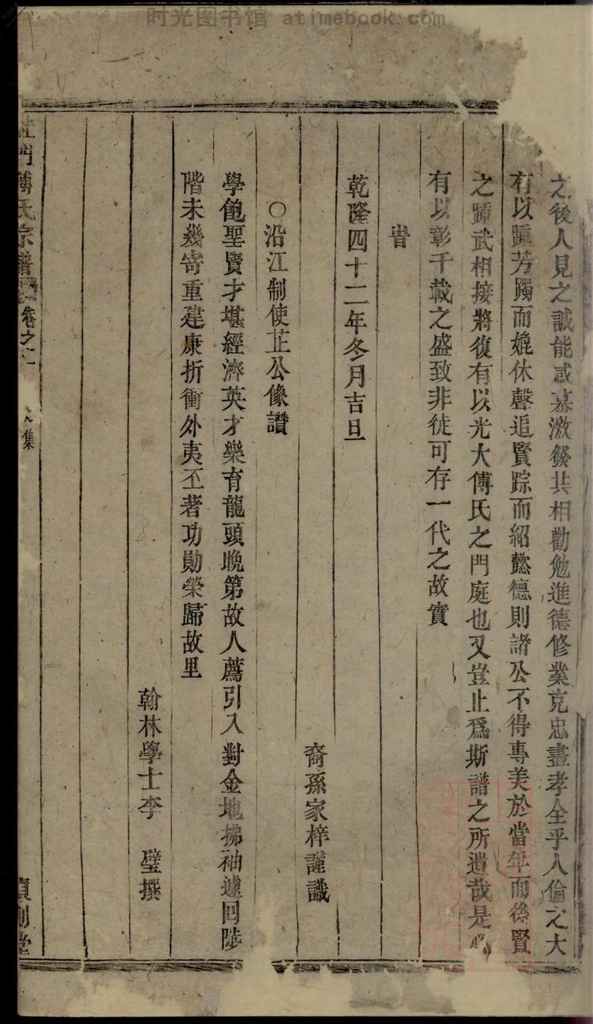 时光图书馆 atimebook.com
之後人見之誠能感慕激發共相勸勉進德修業克忠盡孝全乎人倫之大
有以踵芳躅而媲休聲追賢踪而紹懿德則諸公不得專美於當年而後賢
之踵武相接將復有以光大傅氏之門庭也又豈止爲斯譜之所遺哉是
有以彰千載之盛致非徒可存一代之故實
旹
乾隆四十二年冬月吉旦
裔孫家梓謹識
○沿江制使芷公像讚
學飽聖賢才堪經濟英才樂育龍頭晚第故人薦引入對金地拂袖遽回陟
階未幾寄重建康折衝外夷丕著功勛榮歸故里
翰林學士李 壁撰
門傅氏宗譜 卷之 集